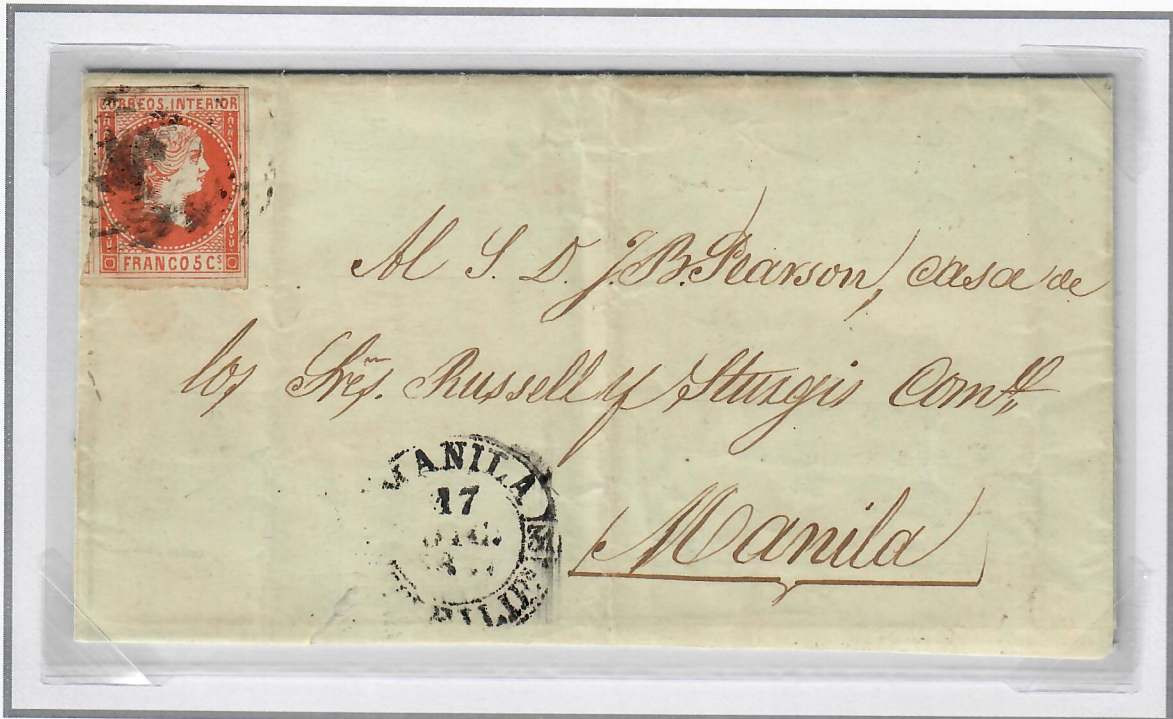 CORREOS INTERIOR
FRANCO 5 Cs
Al S. D. J. B. Pearson, casa de
los Sres. Russell y Sturgis Comp
MANILA
17
Manila